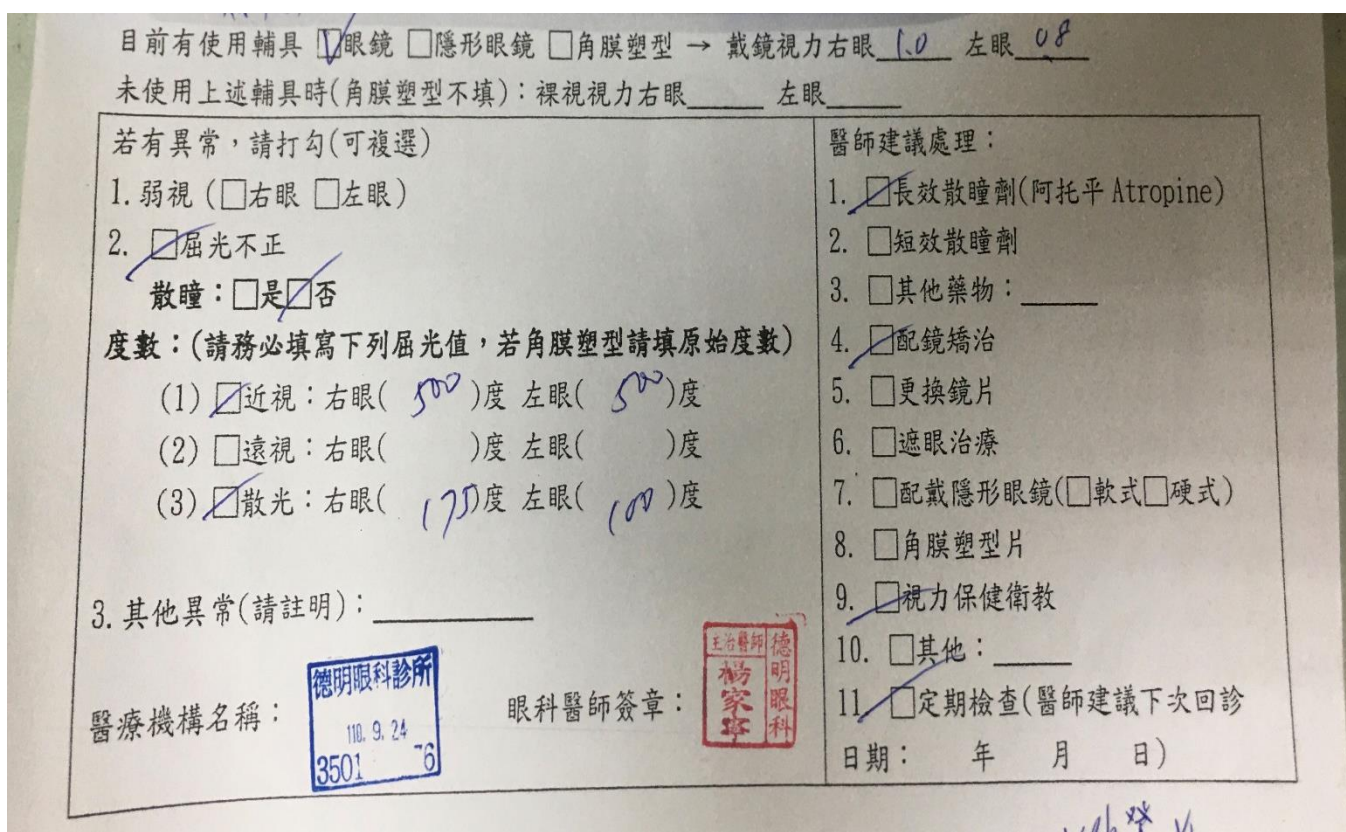 目前有使用輔具 ☑眼鏡 □隱形眼鏡 □角膜塑型 → 戴鏡視力右眼 1.0 左眼 08
未使用上述輔具時(角膜塑型不填)：裸視視力右眼_____ 左眼_____
若有異常，請打勾(可複選)
1.弱視 (□右眼 □左眼)
2. ☑屈光不正
散瞳：□是☑否
度數：(請務必填寫下列屈光值，若角膜塑型請填原始度數)
(1) ☑近視：右眼( 500 )度 左眼( 500 )度
(2) □遠視：右眼( )度 左眼( )度
(3) ☑散光：右眼( 175 )度 左眼( 100 )度
3.其他異常(請註明)：_____
醫療機構名稱：
德明眼科診所
110. 9. 24
3501 76
眼科醫師簽章：
主治醫師
楊家寧
德明眼科
醫師建議處理：
1. ☑長效散瞳劑(阿托平 Atropine)
2. □短效散瞳劑
3. □其他藥物：_____
4. ☑配鏡矯治
5. □更換鏡片
6. □遮眼治療
7. □配戴隱形眼鏡(□軟式□硬式)
8. □角膜塑型片
9. ☑視力保健衛教
10. □其他：_____
11. ☑定期檢查(醫師建議下次回診
日期： 年 月 日)